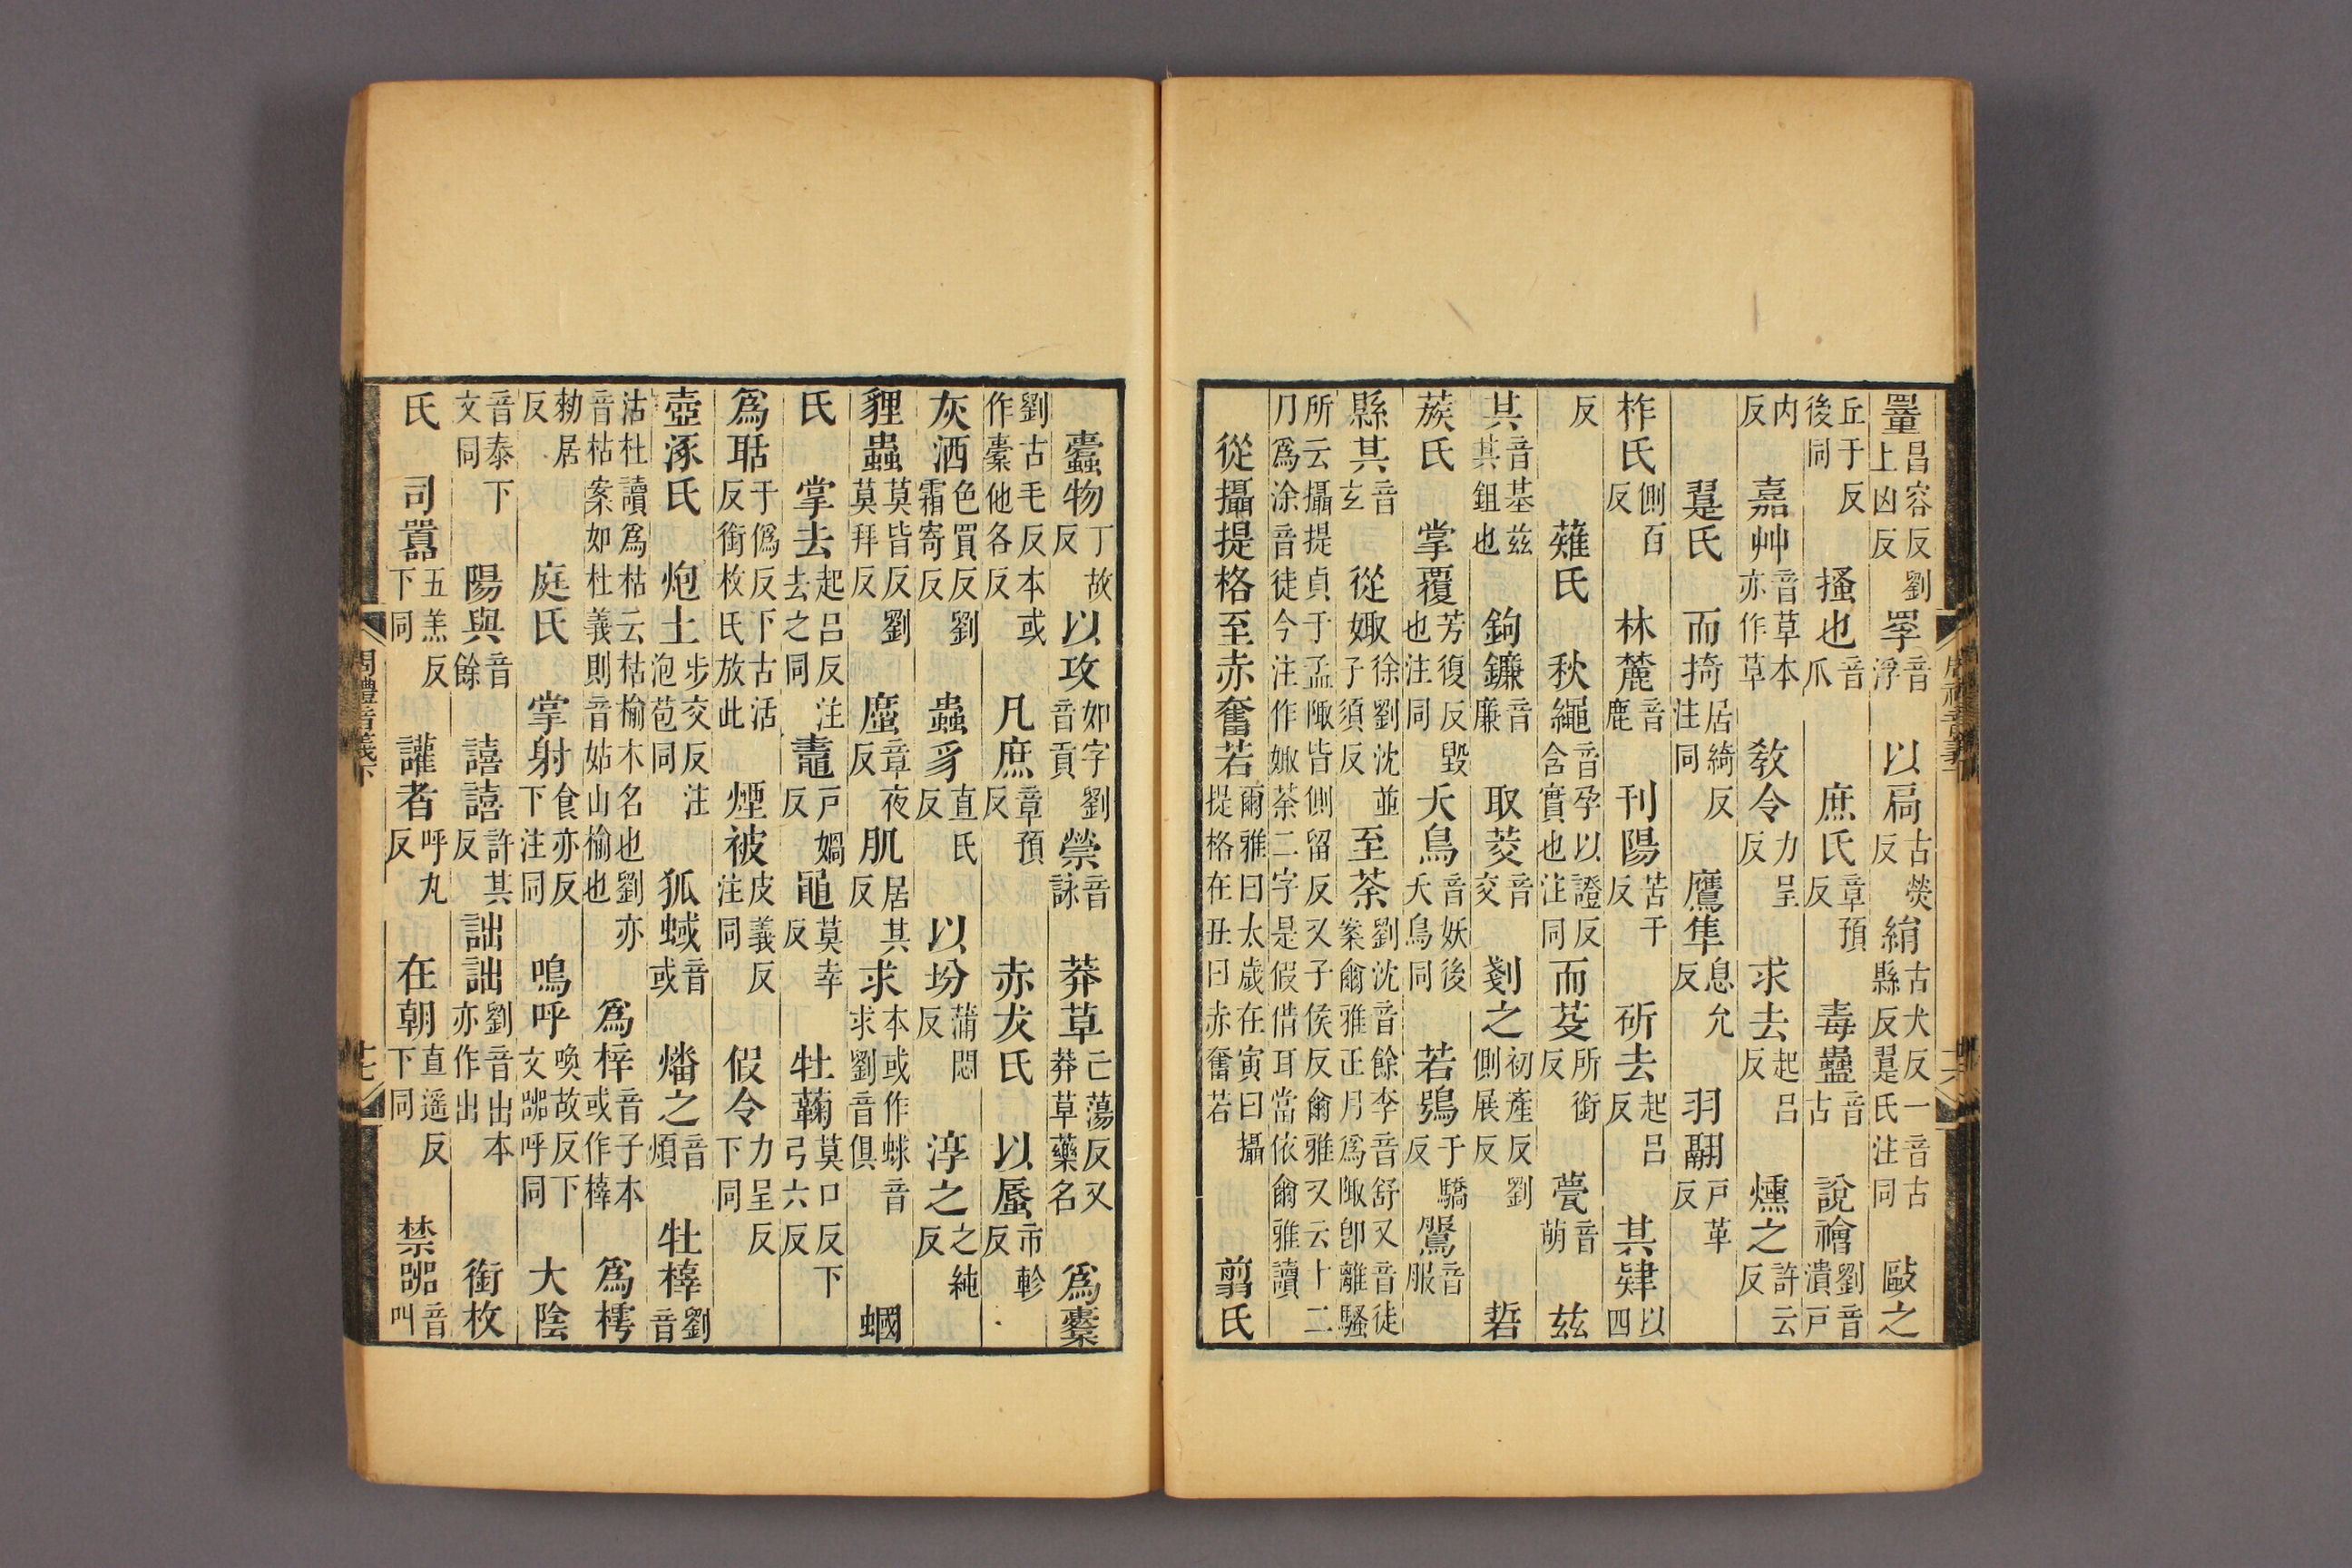 罿昌容反劉上凶反罦音浮以扃古熒反絹古犬反一音古縣反翨氏注同敺之
丘于反後同搔也音爪庶氏章預反毒蠱音古說禬劉音潰戶
内反嘉艸音草本亦作草教令力呈反求去起呂反燻之許云反
翨氏而掎居綺反注同鷹隼息允反羽翮戶革反
柞氏側百反林麓音鹿刊陽苦干反斫去起呂反其肄以四
反薙氏秋繩音孕以證反含實也注同而芟所銜反甍音萌茲
其音基茲其鉏也鉤鐮音廉取茭音交剗之初產反劉側展反硩
蔟氏掌覆芳復反毀也注同夭鳥音妖後夭鳥同若鴞于驕反鵩音服
縣其音玄從娵徐劉沈並子須反至荼劉沈音餘李音舒又音徒案爾雅正月爲陬卽離騷
所云攝提貞于孟陬皆側留反又子侯反爾雅又云十二月爲涂音徒今注作娵荼二字是假借耳當依爾雅讀
從攝提格至赤奮若爾雅曰太歲在寅曰攝提格在丑曰赤奮若翦氏
蠹物丁故反以攻如字劉音貢禜音詠莽草己蕩反又莽草藥名爲櫜
劉古毛反本或作橐他各反凡庶章預反赤犮氏以蜃市軫反
灰洒色買反劉霜寄反蟲豸直氏反以坋蒲悶反淳之之純反
貍蟲莫皆反劉莫拜反䗪章夜反肌居其反求本或作蛷音求劉音俱蟈
氏掌去起呂反注去之同鼃戶媧反黽莫幸反牡蘜莫口反下弓六反
爲聒于僞反下古活反銜枚氏放此煙被皮義反注同假令力呈反下同
壺涿氏炮土步交反注泡苞同狐蜮音或燔之音煩牡橭劉音
沽杜讀爲枯云枯榆木名也劉亦音枯案如杜義則音姑山榆也爲梓音子本或作榟爲樗
勑居反庭氏掌射食亦反下注同鳴呼喚故反下文嘂呼同大陰
音泰下文同陽與音餘譆譆許其反詘詘劉音出本亦作出銜枚
氏司囂五羔反下同讙者呼丸反在朝直遥反下同禁嘂音叫
周禮音義下
十七